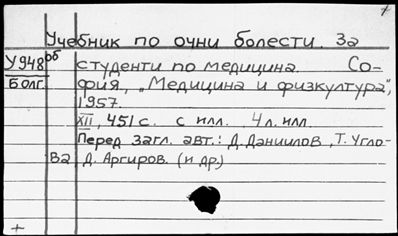 Учебник по очни болести. За
У948об студенти по медицина. Со-
Болг. фия, „Медицина и физкултура",
1957.
XII, 451 с. с илл. 4 л. илл.
Перед загл. авт.: Д. Даниилов, Т. Угло-
ва Д. Аргиров. (и др.)